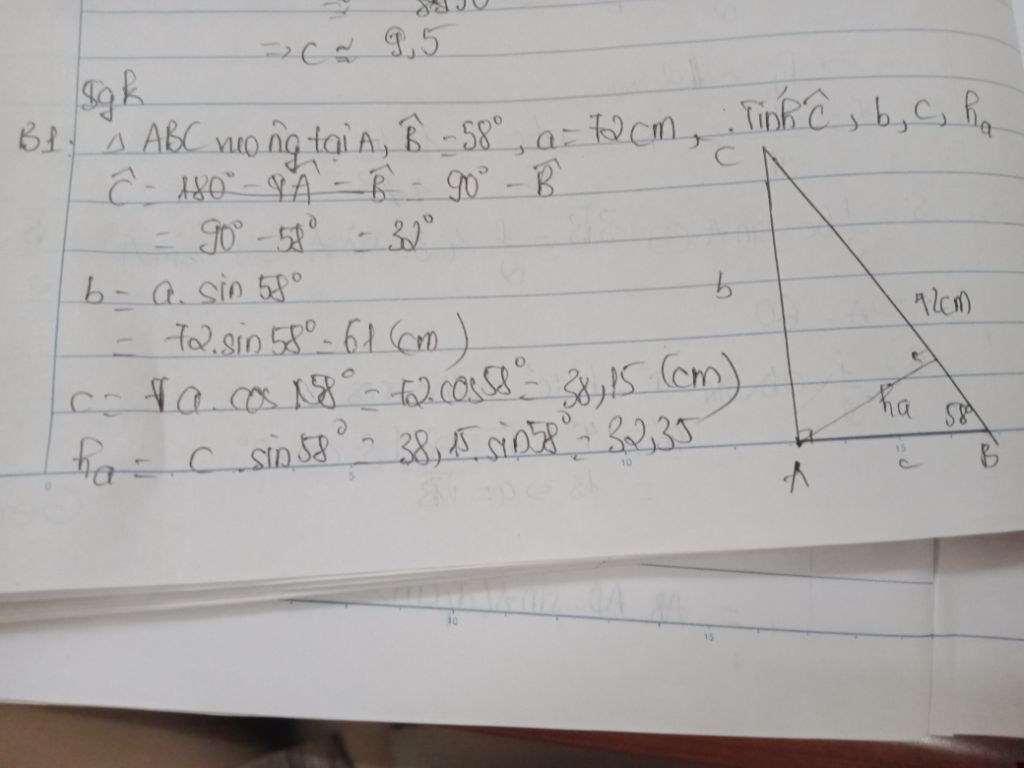 ⇒ c ≈ 9,5
Sgk
B1: Δ ABC vuông tại A, B̂ = 58°, a = 72 cm, Tính Ĉ, b, c, ha
Ĉ = 180° - Â - B̂ = 90° - B̂
= 90° - 58° = 32°
b = a. sin 58°
= 72. sin 58° = 61 (cm)
c = a. cos 58° = 72. cos 58° = 38,15 (cm)
ha = c . sin 58° = 38,15. sin 58° = 32,35
C
b
72cm
ha
58°
A
c
B
5
10
15
10
15